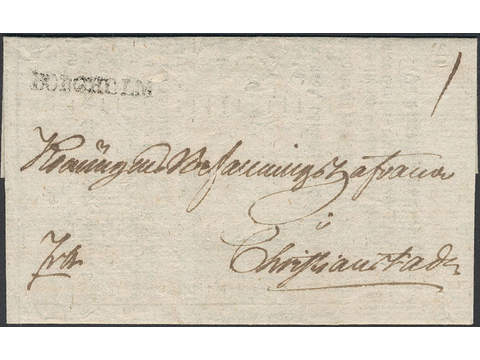 BORGHOLM
Konungens Befallningshafvande
i
Christianstad